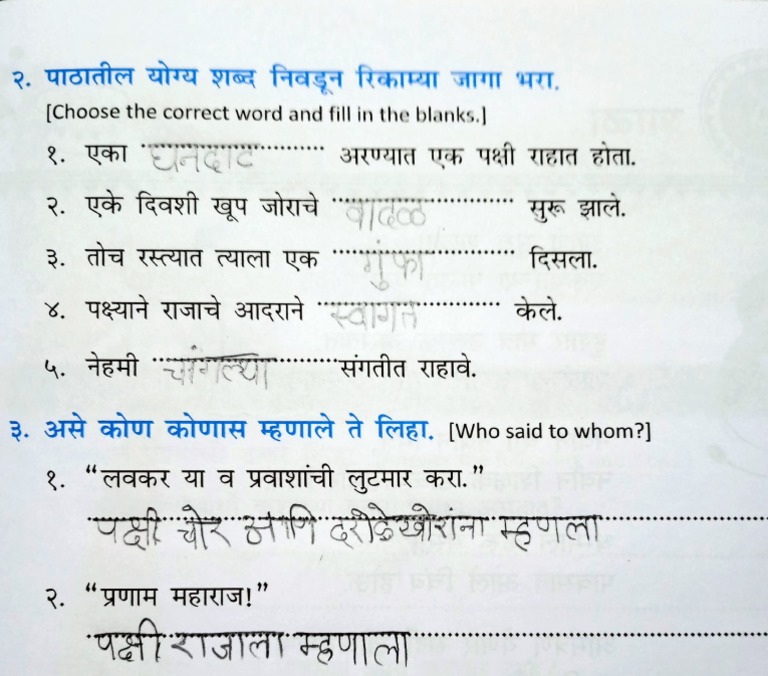 २. पाठातील योग्य शब्द निवडून रिकाम्या जागा भरा.
[Choose the correct word and fill in the blanks.]
१. एका घनदाट अरण्यात एक पक्षी राहात होता.
२. एके दिवशी खूप जोराचे वादळ सुरू झाले.
३. तोच रस्त्यात त्याला एक गुंफा दिसला.
४. पक्ष्याने राजाचे आदराने स्वागत केले.
५. नेहमी चांगल्या संगतीत राहावे.
३. असे कोण कोणास म्हणाले ते लिहा. [Who said to whom?]
१. “लवकर या व प्रवाशांची लुटमार करा.”
पक्षी चोर आणि दरोडेखोरांना म्हणला
२. “प्रणाम महाराज!”
पक्षी राजाला म्हणाला